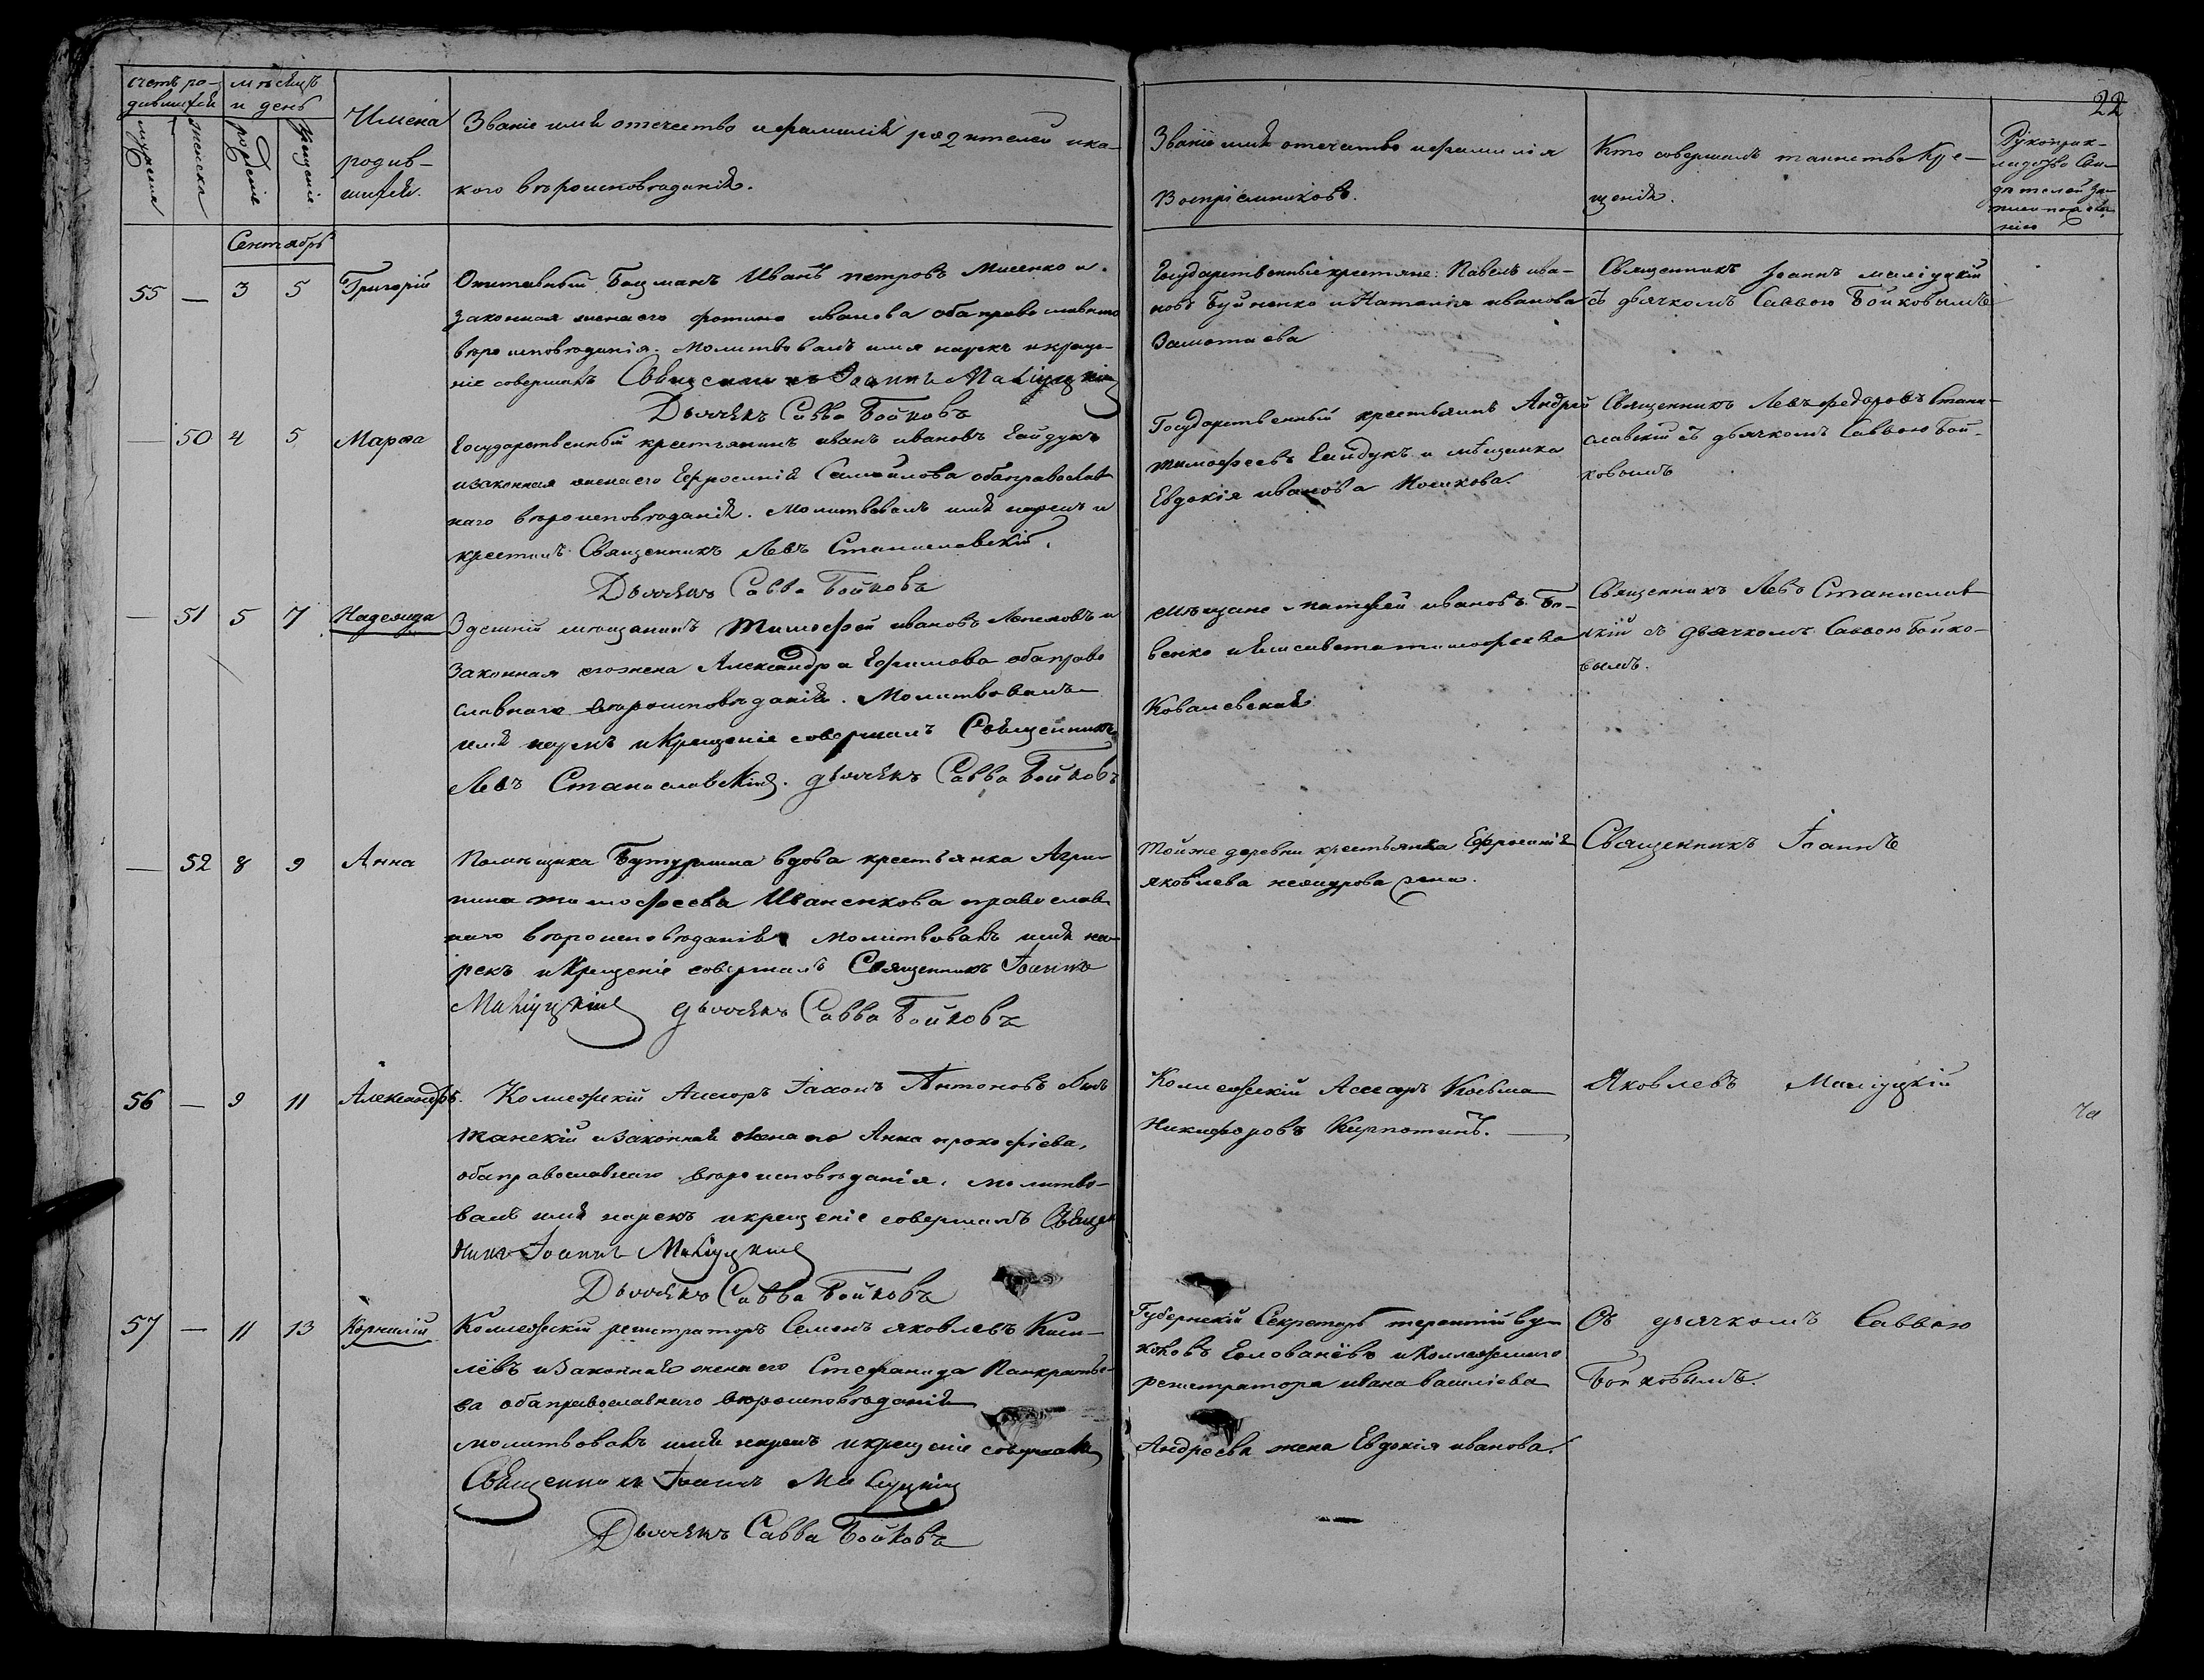 22
счетъ ро-
дившихся
мѣсяцъ
и день
мужеска
женска
рожденіе
крещеніе
Имена
родив-
шихся.
Званіе имя отечество и фамилія родителей и ка-
кого вѣроисповѣданія.
Званіе имя отечество и фамилія
Воспріемниковъ.
Кто совершалъ таинство Кре-
щенія.
Рукоприк-
ладство Сви-
дѣтелей за-
писи по жела-
нію
Сентябрь
55 — 3 5 Григорій
Отставный Боцманъ Иванъ петровъ Мисенко и
законная жена его фотина иванова оба православнаго
вѣроисповѣданія. Молитвовалъ имя нарекъ и креще-
ніе совершалъ Священникъ Іоаннъ Малiуцкій
Дьячекъ Савва Бойковъ
Государственные крестяне: Павелъ ива-
новъ Буйненко и Наталія иванова
Заметаева
Священникъ Іоаннъ малiуцкій
съ дьячкомъ Саввою Бойковымъ
— 50 4 5 Марѳа
Государственный крестьянинъ иванъ ивановъ Гайдукъ
и законная жена его Ефросинія Самойлова оба православ
наго вѣроисповѣданія. Молитвовалъ имя нарекъ и
крестилъ Священникъ Левъ Станиславскій.
Дьячекъ Савва Бойковъ
Государственный крестьянинъ Андрей
тимофеевъ Гайдукъ и мѣщанка
Евдокія иванова Носикова.
Священникъ Левъ федоровъ Стани-
славскій съ дьячкомъ Саввою Бой-
ковымъ
— 51 5 7 Надежда
Здешній мѣщанинъ Тимофей ивановъ и
Законная его жена Александра Ефимова оба право
славнаго вѣроисповѣданія. Молитвовалъ
имя нарекъ и Крещеніе совершалъ Священникъ
Левъ Станиславскій. дьячекъ Савва Бойковъ
Мѣщане матфей ивановъ Бо-
венко и Елисавета тимофеева
Ковалевская
Священникъ Левъ Станислав
скій съ дьячкомъ Саввою Бойко-
вымъ.
— 52 8 9 Анна
Помѣщика Бутурлина вдова крестьянка Агри-
пина тимофеева Иваненкова православ
наго вѣроисповѣданія молитвовалъ имя на-
рекъ и Крещеніе совершалъ Священникъ Іоаннъ
Малiуцкій дьячекъ Савва Бойковъ
Той же деревни крестьянка Ефросинія
яковлева
Священникъ Іоаннъ
56 — 9 11 Александръ.
Колежскій Асесоръ Антоновъ
и Законная жена его Анна прокофіева,
оба православнаго вѣроисповѣданія, молитво-
валъ имя нарекъ и крещеніе совершалъ Священ
никъ Іоаннъ Малiуцкій
Дьячекъ Савва Бойковъ
Колежскій Асесоръ Косьма
Никифоровъ Кирпотинъ.
Яковлевъ Малiуцкій
57 — 11 13 Корнилій
Колежскій регистраторъ Семенъ яковлевъ Кисе-
лёвъ и Законная жена его Стефанида Панкратье-
ва оба православнаго вѣроисповѣданія
молитвовалъ имя нарекъ и крещеніе совершалъ
Священникъ Іоаннъ Малiуцкій
Дьячекъ Савва Бойковъ
Губернскій Секретарь терентій ву-
коловъ Голованёвъ и Коллежскаго
регистратора ивана василіева
Андреева жена Евдокія иванова.
Съ дьячкомъ Саввою
Бойковымъ.